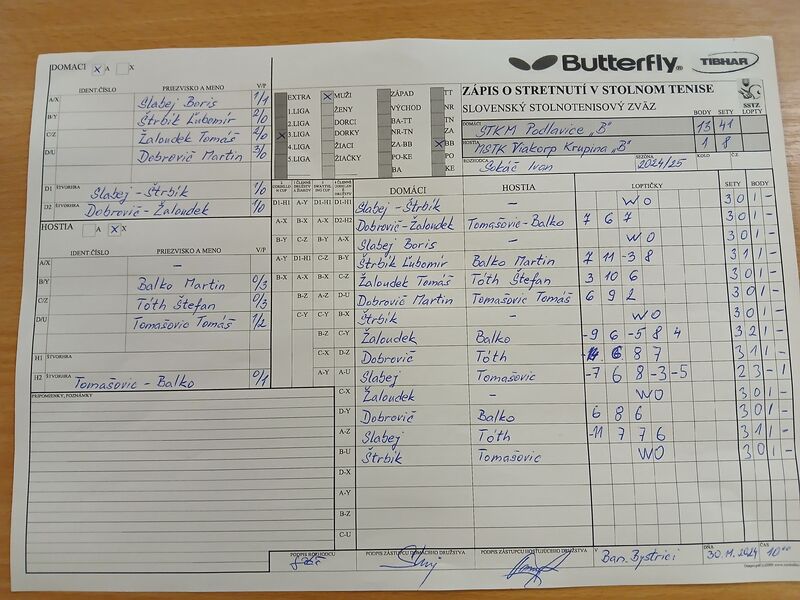 DOMÁCI X A X
Butterfly TIBHAR
IDENT.ČÍSLO PRIEZVISKO A MENO V/P
A/X Slabej Boris 1/1
B/Y Štrbík Ľubomír 2/0
C/Z Žaloudek Tomáš 2/0
D/U Dobrovič Martin 3/0
D1 ŠTVORHRA Slabej - Štrbík 1/0
D2 ŠTVORHRA Dobrovič - Žaloudek 1/0
HOSTIA A X X
IDENT.ČÍSLO PRIEZVISKO A MENO V/P
A/X —
B/Y Balko Martin 0/3
C/Z Tóth Štefan 0/3
D/U Tomašovic Tomáš 1/2
H1 ŠTVORHRA
H2 ŠTVORHRA Tomašovic - Balko 0/1
PRIPOMIENKY, POZNÁMKY
EXTRA X MUŽI ZÁPAD TT
1.LIGA ŽENY VÝCHOD NR
2.LIGA DORCI BA-TT TN
X 3.LIGA DORKY NR-TN ZA
4.LIGA ŽIACI ZA-BB X BB
5.LIGA ŽIAČKY PO-KE PO
BA KE
ZÁPIS O STRETNUTÍ V STOLNOM TENISE
SLOVENSKÝ STOLNOTENISOVÝ ZVÄZ SSTZ
BODY SETY LOPTY
DOMÁCI STKM Podlavice „B" 13 41
HOSTIA MSTK Viakorp Krupina „B" 1 8
ROZHODCA Sokáč Ivan SEZÓNA 2024/25 KOLO Č.Z.
DOMÁCI HOSTIA LOPTIČKY SETY BODY
D1-H1 A-Y D1-H1 D1-H1 Slabej - Štrbík — WO 3 0 1 -
A-X B-X A-X D2-H2 Dobrovič - Žaloudek Tomašovic - Balko 7 6 7 3 0 1 -
B-Y C-Z B-Y A-X Slabej Boris — WO 3 0 1 -
A-Y D1-H1 C-Z B-Y Štrbík Ľubomír Balko Martin 7 11 -3 8 3 1 1 -
B-X A-X D1-H1 C-Z Žaloudek Tomáš Tóth Štefan 3 10 6 3 0 1 -
B-Z A-Z D-U Dobrovič Martin Tomašovic Tomáš 6 9 2 3 0 1 -
C-Y C-Y B-X Štrbík — WO 3 0 1 -
B-Z C-Y Žaloudek Balko -9 6 -5 8 4 3 2 1 -
C-X D-Z Dobrovič Tóth 6 8 7 3 1 1 -
A-Y A-U Slabej Tomašovic -7 6 8 -3 -5 2 3 - 1
C-X Žaloudek — WO 3 0 1 -
D-Y Dobrovič Balko 6 8 6 3 0 1 -
A-Z Slabej Tóth -11 7 7 6 3 1 1 -
B-U Štrbík Tomašovic WO 3 0 1 -
D-X
A-Y
B-Z
C-U
PODPIS ROZHODCU PODPIS ZÁSTUPCU DOMÁCEHO DRUŽSTVA PODPIS ZÁSTUPCU HOSŤUJÚCEHO DRUŽSTVA V Ban. Bystrici DŇA 30.11.2024 ČAS 10⁰⁰